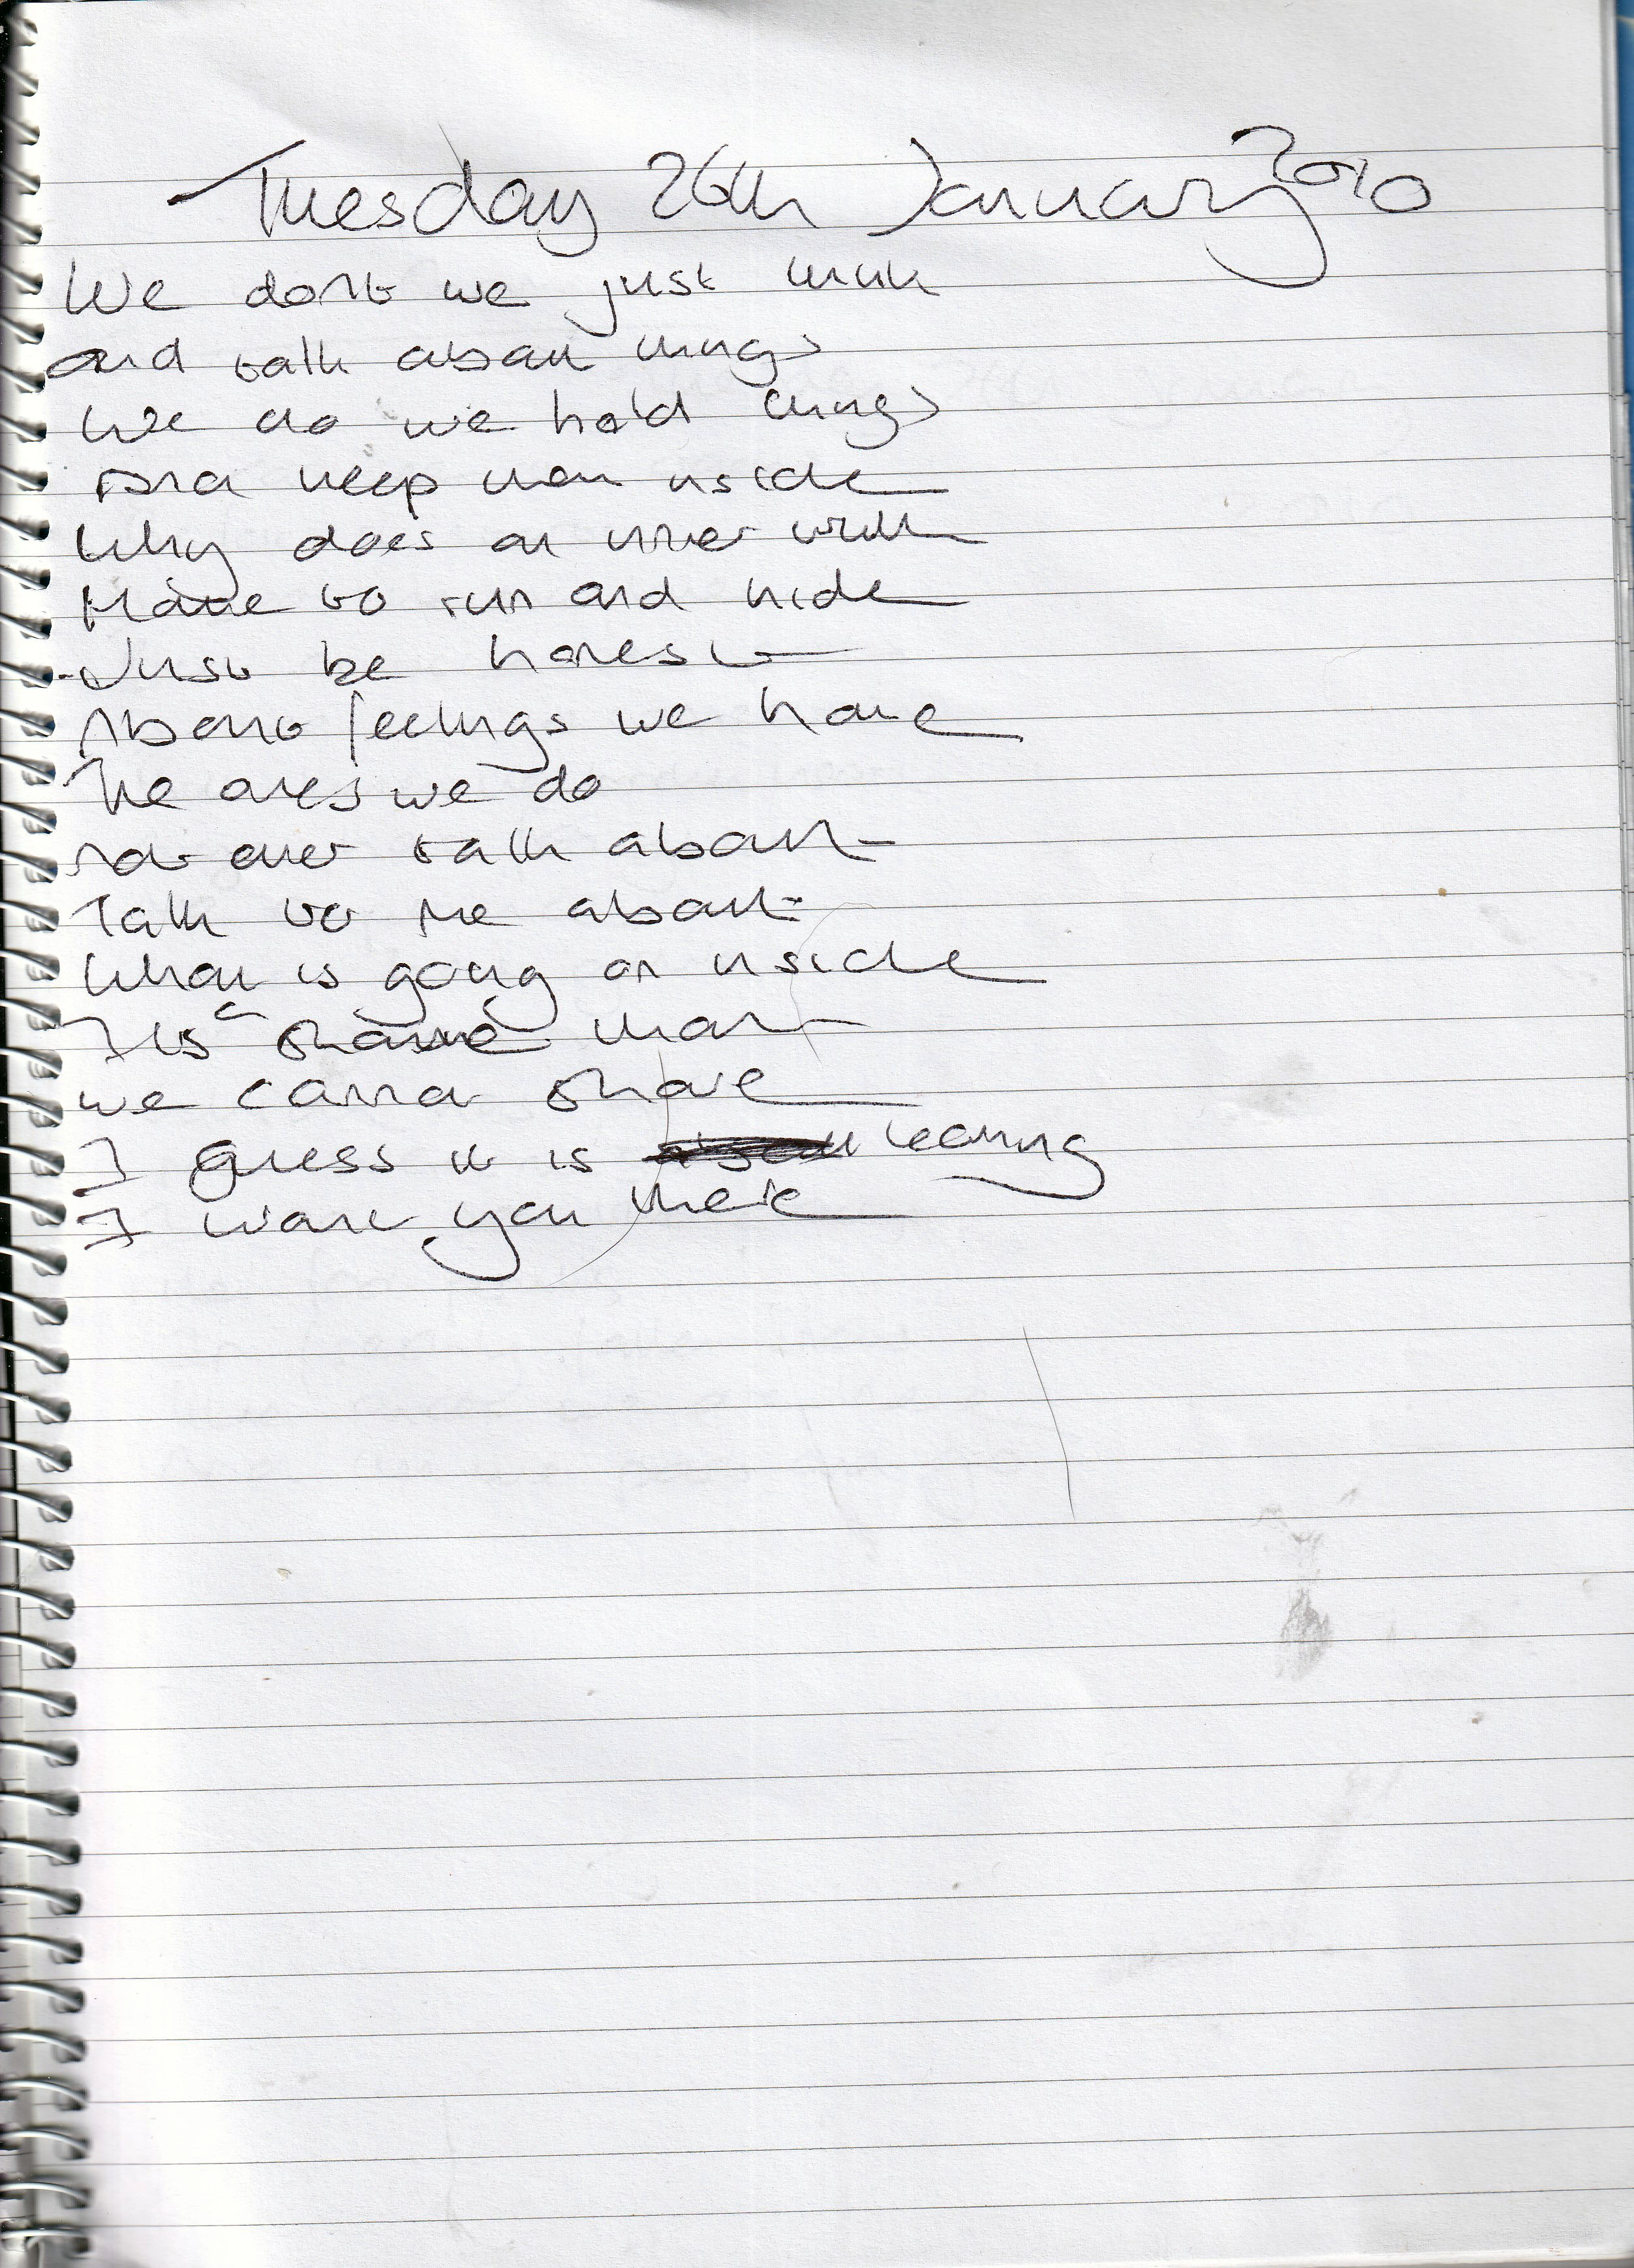 Tuesday 26th January 2010
We dont we just think
and talk about things
We do we hold things
and keep them inside
Why does an inner truth
Have to run and hide
Just be honest
About feelings we have
The ones we do
not ever talk about
Talk to me about
What is going on inside
Its a shame that
we cannot share
I guess it is leaving
I want you there